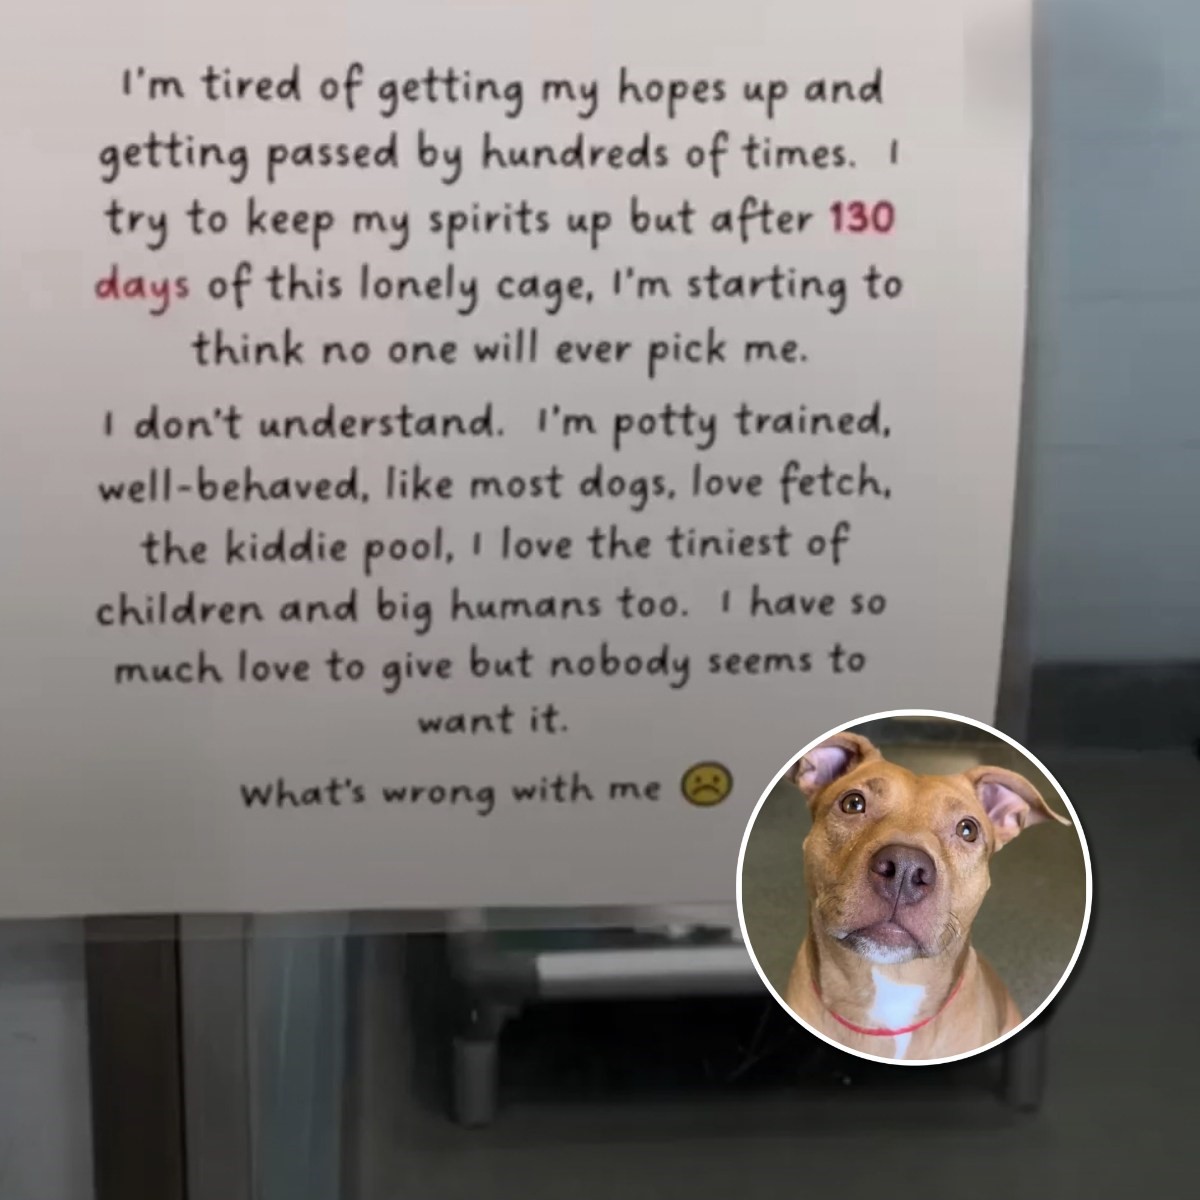 I'm tired of getting my hopes up and
getting passed by hundreds of times. I
try to keep my spirits up but after 130
days of this lonely cage, I'm starting to
think no one will ever pick me.
I don't understand. I'm potty trained,
well-behaved, like most dogs, love fetch,
the kiddie pool, I love the tiniest of
children and big humans too. I have so
much love to give but nobody seems to
want it.
What's wrong with me ☹